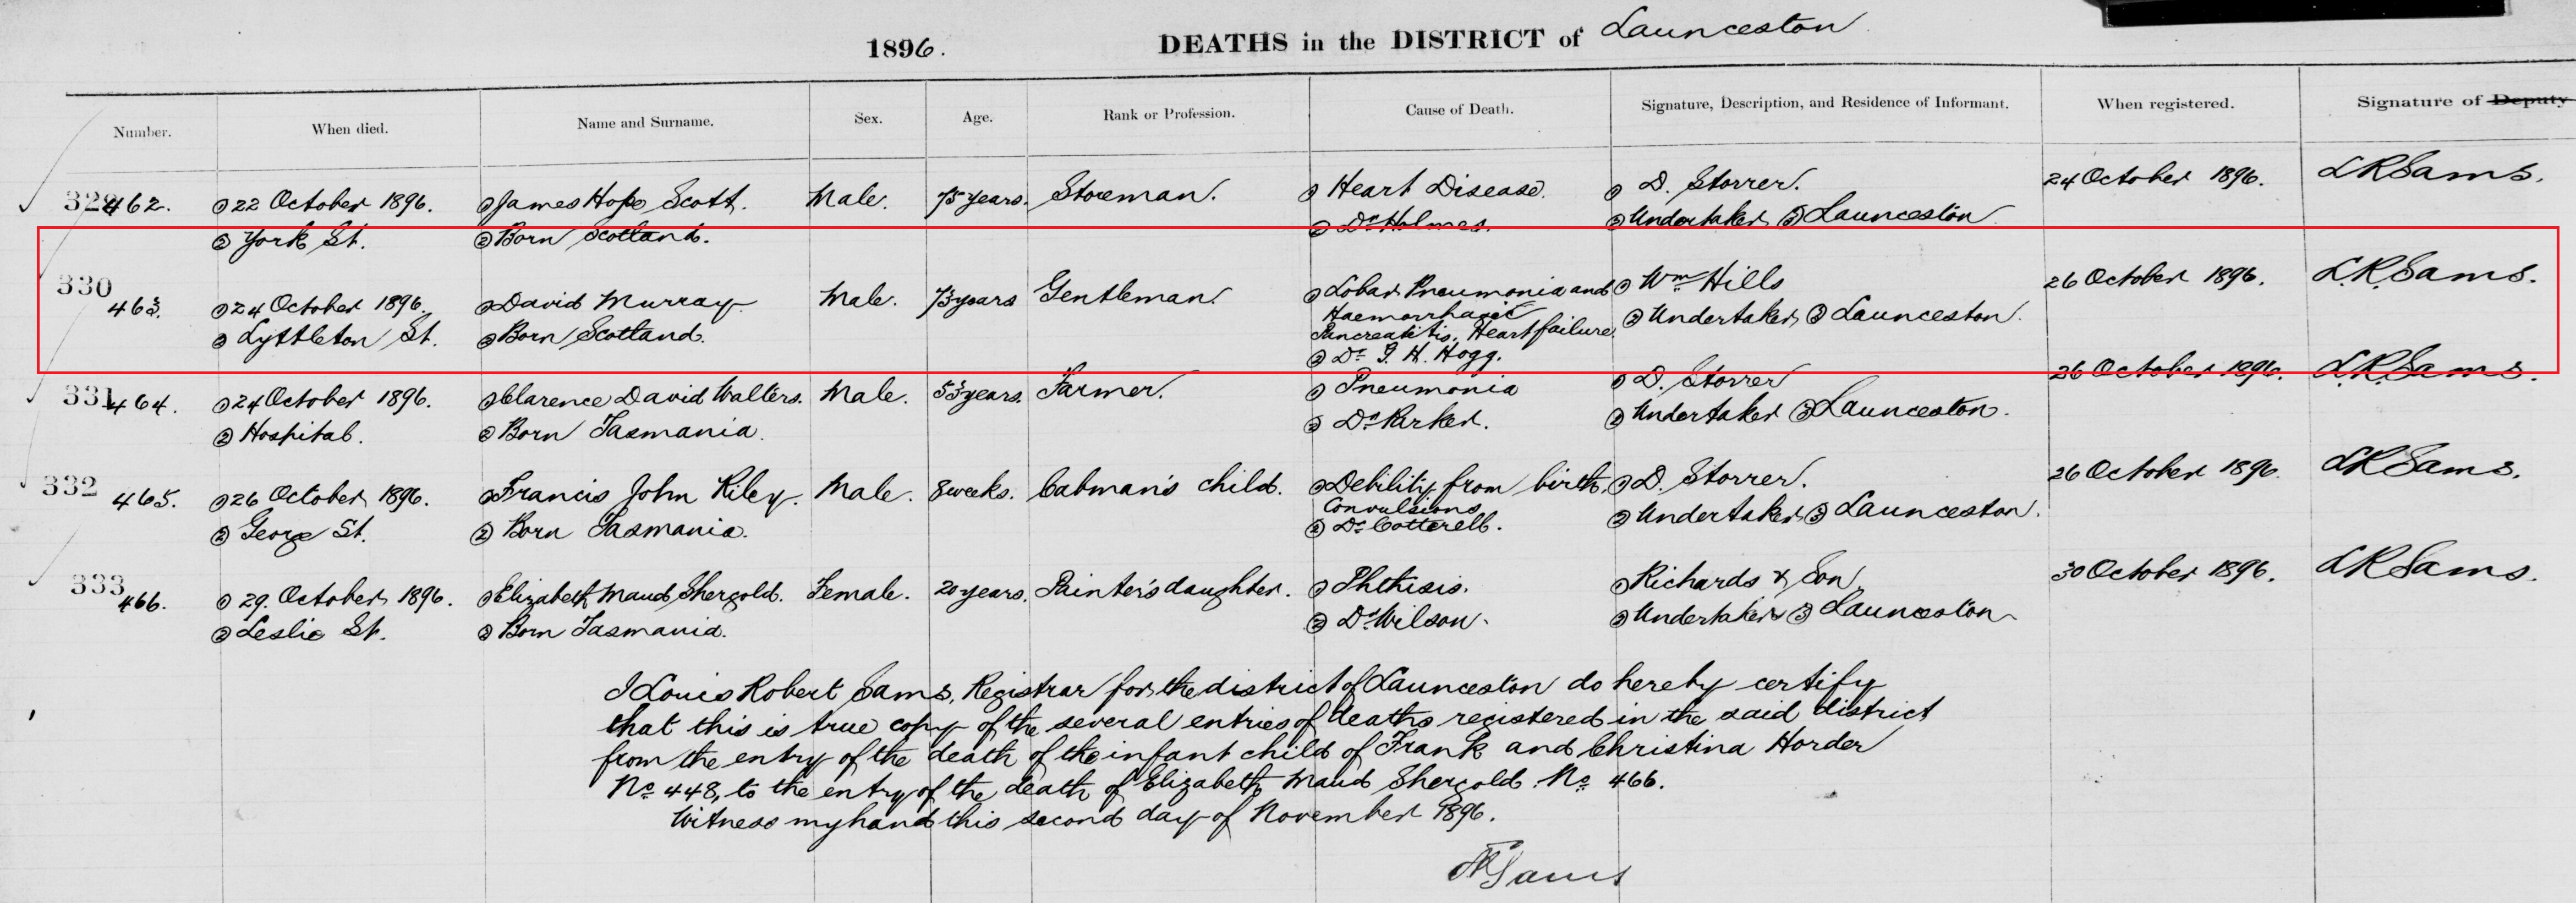 1896. DEATHS in the DISTRICT of Launceston
Number. When died. Name and Surname. Sex. Age. Rank or Profession. Cause of Death. Signature, Description, and Residence of Informant. When registered. Signature of Deputy
329 462. ① 22 October 1896. ① James Hope Scott. Male. 75 years. Storeman. ① Heart Disease. ① D. Storrer. 24 October 1896. L R Sams.
② York St. ② Born Scotland. ② Dr Holmes. ② Undertaker ③ Launceston
330 463. ① 24 October 1896. ① David Murray Male. 73 years Gentleman. ① Lobar Pneumonia and ① Wm Hills 26 October 1896. L. R. Sams.
Haemorrhagic
② Lyttleton St. ② Born Scotland. Pancreatitis, Heart failure. ② Undertaker, ③ Launceston.
② Dr G. H. Hogg.
331 464. ① 24 October 1896. ① Clarence David Walters. Male. 53 years. Farmer. ① Pneumonia ① D. Storrer 26 October 1896. L. R. Sams.
② Hospital. ② Born Tasmania. ② Dr Parker. ② Undertaker ③ Launceston.
332 465. ① 26 October 1896. ① Francis John Riley. Male. 8 weeks. Cabman's child. ① Debility from birth, ① D. Storrer. 26 October 1896. L R Sams.
Convulsions
② George St. ② Born Tasmania. ② Dr Cotterell. ② Undertaker, ③ Launceston.
333 466. ① 29. October 1896. ① Elizabeth Maud Shergold. Female. 20 years. Painter's daughter. ① Phthisis. ① Richards & Son, 30 October 1896. L R Sams.
② Leslie St. ② Born Tasmania. ② Dr Wilson. ② Undertakers ③ Launceston
I Louis Robert Sams, Registrar for the district of Launceston do hereby certify
that this is true copy of the several entries of deaths registered in the said district
from the entry of the death of the infant child of Frank and Christina Horder
No. 448, to the entry of the death of Elizabeth Maud Shergold. No. 466.
Witness my hand this second day of November 1896.
L R Sams